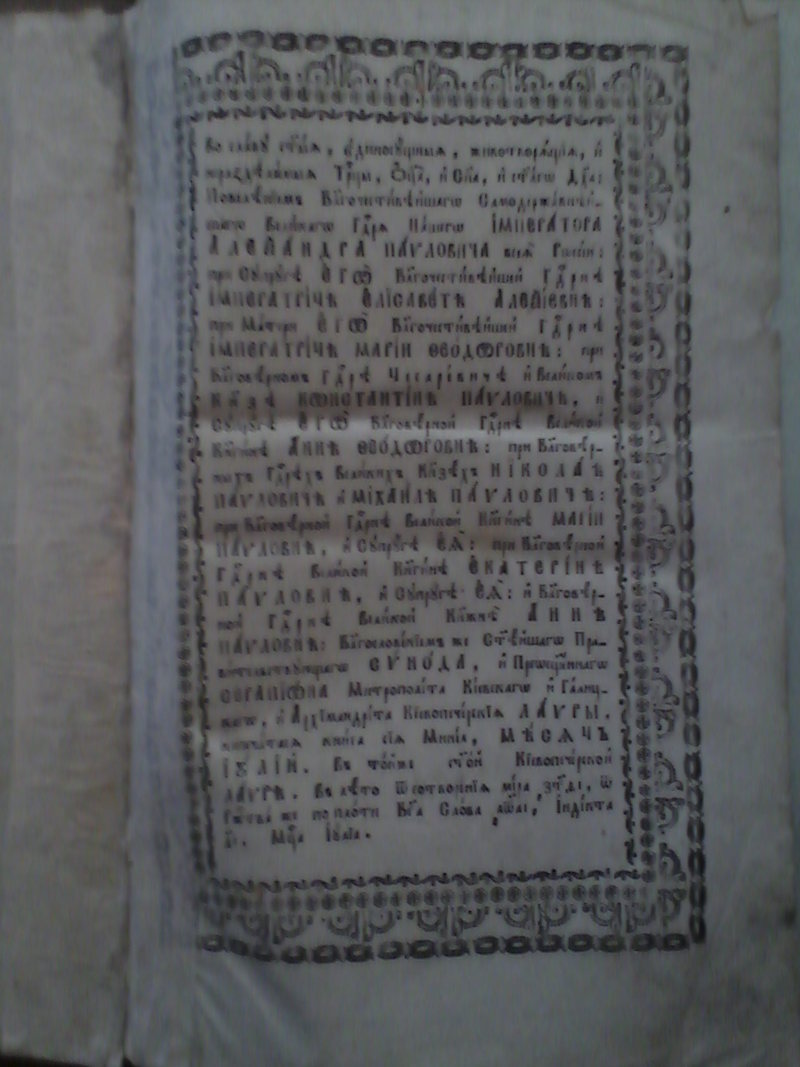 Во славу ст҃ыѧ, единосущныѧ, животворѧщіѧ, и
нераздѣлимыѧ Трⷪ҇цы, Ѻц҃а, и Сн҃а, и ст҃агѡ Дх҃а:
Повелѣніемъ Бл҃гочестивѣйшагѡ Самодержавнѣй-
шагѡ Великагѡ Гдⷭ҇рѧ Нашегѡ ІМПЕРАТОРА
АЛЕѮАНДРА ПАѴЛОВИЧА всеѧ Рѡссіи:
при Супрꙋгѣ ЕГѠ Бл҃гочестивѣйшей Гдⷭ҇рнѣ
ІМПЕРАТРІЧѢ ЕЛІСАВЕТѢ АЛЕѮІЕВНѢ:
при Матери ЕГѠ Бл҃гочестивѣйшей Гдⷭ҇рнѣ
ІМПЕРАТРІЧѢ МАРІИ ѲЕОДѠРОВНѢ: при
Бл҃говѣрномъ Гдⷭ҇рѣ Чесаревичѣ и Великомъ
Кнѧзѣ КѠНСТАНТІНѢ ПАѴЛОВИЧѢ, и
Супрꙋгѣ ЕГѠ Бл҃говѣрной Гдⷭ҇рнѣ Великой
Кнѧгинѣ АННѢ ѲЕОДѠРОВНѢ: при Бл҃говѣр-
ныхъ Гдⷭ҇рѣхъ Великихъ Кнѧзѣхъ НІКОЛАѢ
ПАѴЛОВИЧѢ и МІХАИЛѢ ПАѴЛОВИЧѢ:
при Бл҃говѣрной Гдⷭ҇рнѣ Великой Кнѧгинѣ МАРІИ
ПАѴЛОВНѢ, и Супрꙋгѣ ЕѦ: при Бл҃говѣрной
Гдⷭ҇рнѣ Великой Кнѧгинѣ ЕКАТЕРІНѢ
ПАѴЛОВНѢ, и Супрꙋгѣ ЕѦ: и Бл҃говѣр-
ной Гдⷭ҇рнѣ Великой Кнѧжнѣ АННѢ
ПАѴЛОВНѢ: Бл҃гословеніемъ же Ст҃ѣйшагѡ Пра-
вительствующагѡ СѴНОДА, и Преѡсщ҃еннагѡ
СЕРАПІѠНА Митрополіта Кіевскагѡ и Галиц-
кагѡ, и Архімандріта Кіевопечерскіѧ ЛАѴРЫ.
книга сіѧ Минеа, МѢСѦЧЪ
ІꙊЛІЙ. Въ тойже ст҃ой Кіевопечерской
ЛАѴРѢ. Въ лѣто ѿ сотворенїѧ міра зт҃ді, ѿ
же по плоти Бг҃а Слова аѡ҃аі, Індікта
ді. Мцⷭ҇а Іюліа.